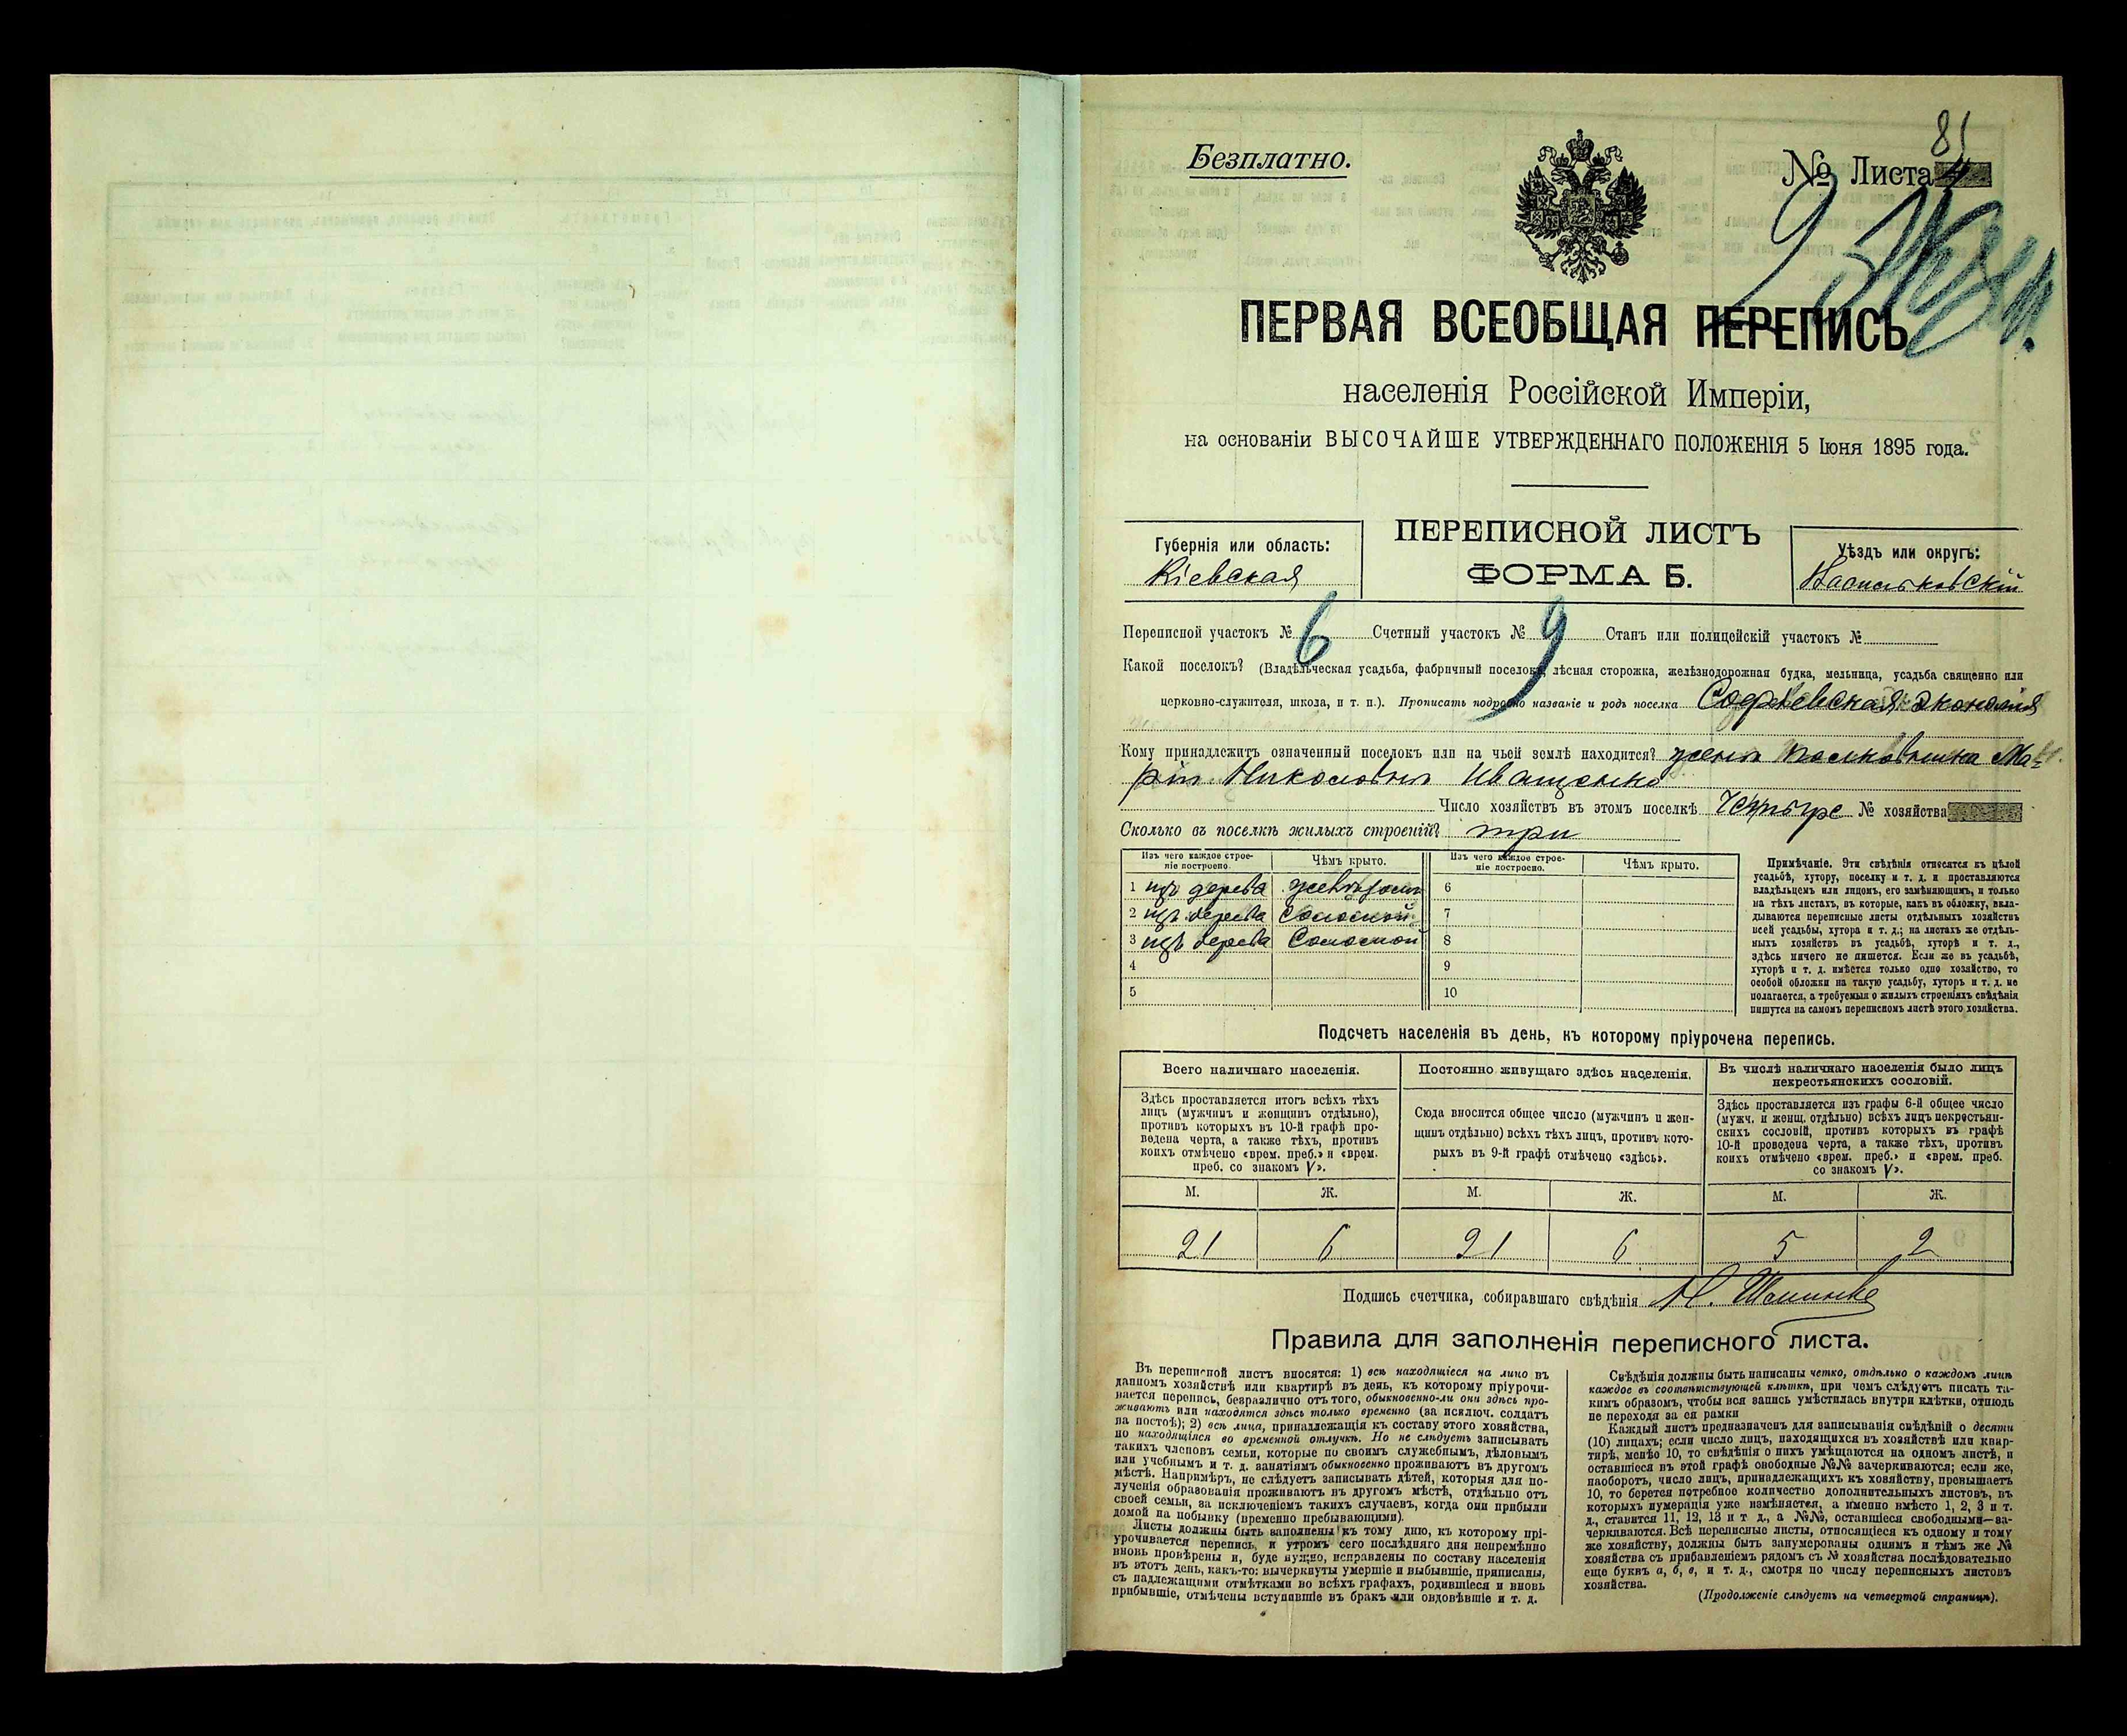 81
Безплатно.
№ Листа
2 экз.
ПЕРВАЯ ВСЕОБЩАЯ ПЕРЕПИСЬ
населенія Россійской Имперіи,
на основаніи ВЫСОЧАЙШЕ УТВЕРЖДЕННАГО ПОЛОЖЕНІЯ 5 Іюня 1895 года.
Губернія или область:
Кіевская
ПЕРЕПИСНОЙ ЛИСТЪ
ФОРМА Б.
Уѣздъ или округъ:
Васильковскій
Переписной участокъ № 6 Счетный участокъ № 9 Станъ или полицейскій участокъ №
Какой поселокъ? (Владѣльческая усадьба, фабричный поселокъ, лѣсная сторожка, желѣзнодорожная будка, мельница, усадьба священно или
церковно-служителя, школа, и т. п.). Прописать подробно названіе и родъ поселка Софіевская экономія
Кому принадлежитъ означенный поселокъ или на чьей землѣ находится? жены полковника Ма-
ріи Николовны Иващенко
Число хозяйствъ въ этомъ поселкѣ Четыре № хозяйства
Сколько въ поселкѣ жилыхъ строеній? три
Изъ чего каждое строе-
ніе построено.
Чѣмъ крыто.
Изъ чего каждое строе-
ніе построено.
Чѣмъ крыто.
1 изъ дерева желѣзомъ 6
2 изъ дерева Соломой 7
3 изъ дерева Соломой 8
4 9
5 10
Примѣчаніе. Эти свѣдѣнія относятся къ цѣлой
усадьбѣ, хутору, поселку и т. д. и проставляются
владѣльцемъ или лицомъ, его замѣняющимъ, и только
на тѣхъ листахъ, въ которые, какъ въ обложку, вкла-
дываются переписные листы отдѣльныхъ хозяйствъ
всей усадьбы, хутора и т. д.; на листахъ же отдѣль-
ныхъ хозяйствъ въ усадьбѣ, хуторѣ и т. д.,
здѣсь ничего не пишется. Если же въ усадьбѣ,
хуторѣ и т. д. имѣется только одно хозяйство, то
особой обложки на такую усадьбу, хуторъ и т. д. не
полагается, а требуемыя о жилыхъ строеніяхъ свѣдѣнія
пишутся на самомъ переписномъ листѣ этого хозяйства.
Подсчетъ населенія въ день, къ которому пріурочена перепись.
Всего наличнаго населенія.
Здѣсь проставляется итогъ всѣхъ тѣхъ
лицъ (мужчинъ и женщинъ отдѣльно),
противъ которыхъ въ 10-й графѣ про-
ведена черта, а также тѣхъ, противъ
коихъ отмѣчено «врем. преб.» и «врем.
преб. со знакомъ V».
Постоянно живущаго здѣсь населенія.
Сюда вносится общее число (мужчинъ и жен-
щинъ отдѣльно) всѣхъ тѣхъ лицъ, противъ кото-
рыхъ въ 9-й графѣ отмѣчено «здѣсь».
Въ числѣ наличнаго населенія было лицъ
некрестьянскихъ сословій.
Здѣсь проставляется изъ графы 6-й общее число
(мужч. и женщ. отдѣльно) всѣхъ лицъ некрестьян-
скихъ сословій, противъ которыхъ въ графѣ
10-й проведена черта, а также тѣхъ, противъ
коихъ отмѣчено «врем. преб.» и «врем. преб.
со знакомъ V».
М. Ж. М. Ж. М. Ж.
21 6 21 6 5 2
Подпись счетчика, собиравшаго свѣдѣнія
Правила для заполненія переписного листа.
Въ переписной листъ вносятся: 1) всѣ находящіеся на лицо въ
данномъ хозяйствѣ или квартирѣ въ день, къ которому пріурочи-
вается перепись, безразлично отъ того, обыкновенно-ли они здѣсь про-
живаютъ или находятся здѣсь только временно (за исключ. солдатъ
на постоѣ); 2) всѣ лица, принадлежащія къ составу этого хозяйства,
но находящіяся во временной отлучкѣ. Но не слѣдуетъ записывать
такихъ членовъ семьи, которые по своимъ служебнымъ, дѣловымъ
или учебнымъ и т. д. занятіямъ обыкновенно проживаютъ въ другомъ
мѣстѣ. Напримѣръ, не слѣдуетъ записывать дѣтей, которыя для по-
лученія образованія проживаютъ въ другомъ мѣстѣ, отдѣльно отъ
своей семьи, за исключеніемъ такихъ случаевъ, когда они прибыли
домой на побывку (временно пребывающими).
Листы должны быть заполнены къ тому дню, къ которому прі-
урочивается перепись, и утромъ сего послѣдняго дня непремѣнно
вновь провѣрены и, буде нужно, исправлены по составу населенія
въ этотъ день, какъ-то: вычеркнуты умершіе и выбывшіе, приписаны,
съ надлежащими отмѣтками во всѣхъ графахъ, родившіеся и вновь
прибывшіе, отмѣчены вступившіе въ бракъ или овдовѣвшіе и т. д.
Свѣдѣнія должны быть написаны четко, отдѣльно о каждомъ лицѣ
каждое въ соотвѣтствующей клѣткѣ, при чемъ слѣдуетъ писать та-
кимъ образомъ, чтобы вся запись умѣстилась внутри клѣтки, отнюдь
не переходя за ея рамки
Каждый листъ предназначенъ для записыванія свѣдѣній о десяти
(10) лицахъ; если число лицъ, находящихся въ хозяйствѣ или квар-
тирѣ, менѣе 10, то свѣдѣнія о нихъ умѣщаются на одномъ листѣ, и
оставшіеся въ этой графѣ свободные №№ зачеркиваются; если же,
наоборотъ, число лицъ, принадлежащихъ къ хозяйству, превышаетъ
10, то берется потребное количество дополнительныхъ листовъ, въ
которыхъ нумерація уже измѣняется, а именно вмѣсто 1, 2, 3 и т.
д., ставится 11, 12, 13 и т д., а №№, оставшіеся свободными—за-
черкиваются. Всѣ переписные листы, относящіеся къ одному и тому
же хозяйству, должны быть занумерованы однимъ и тѣмъ же №
хозяйства съ прибавленіемъ рядомъ съ № хозяйства послѣдовательно
еще буквъ а, б, в, и т. д., смотря по числу переписныхъ листовъ
хозяйства.
(Продолженіе слѣдуетъ на четвертой страницѣ).